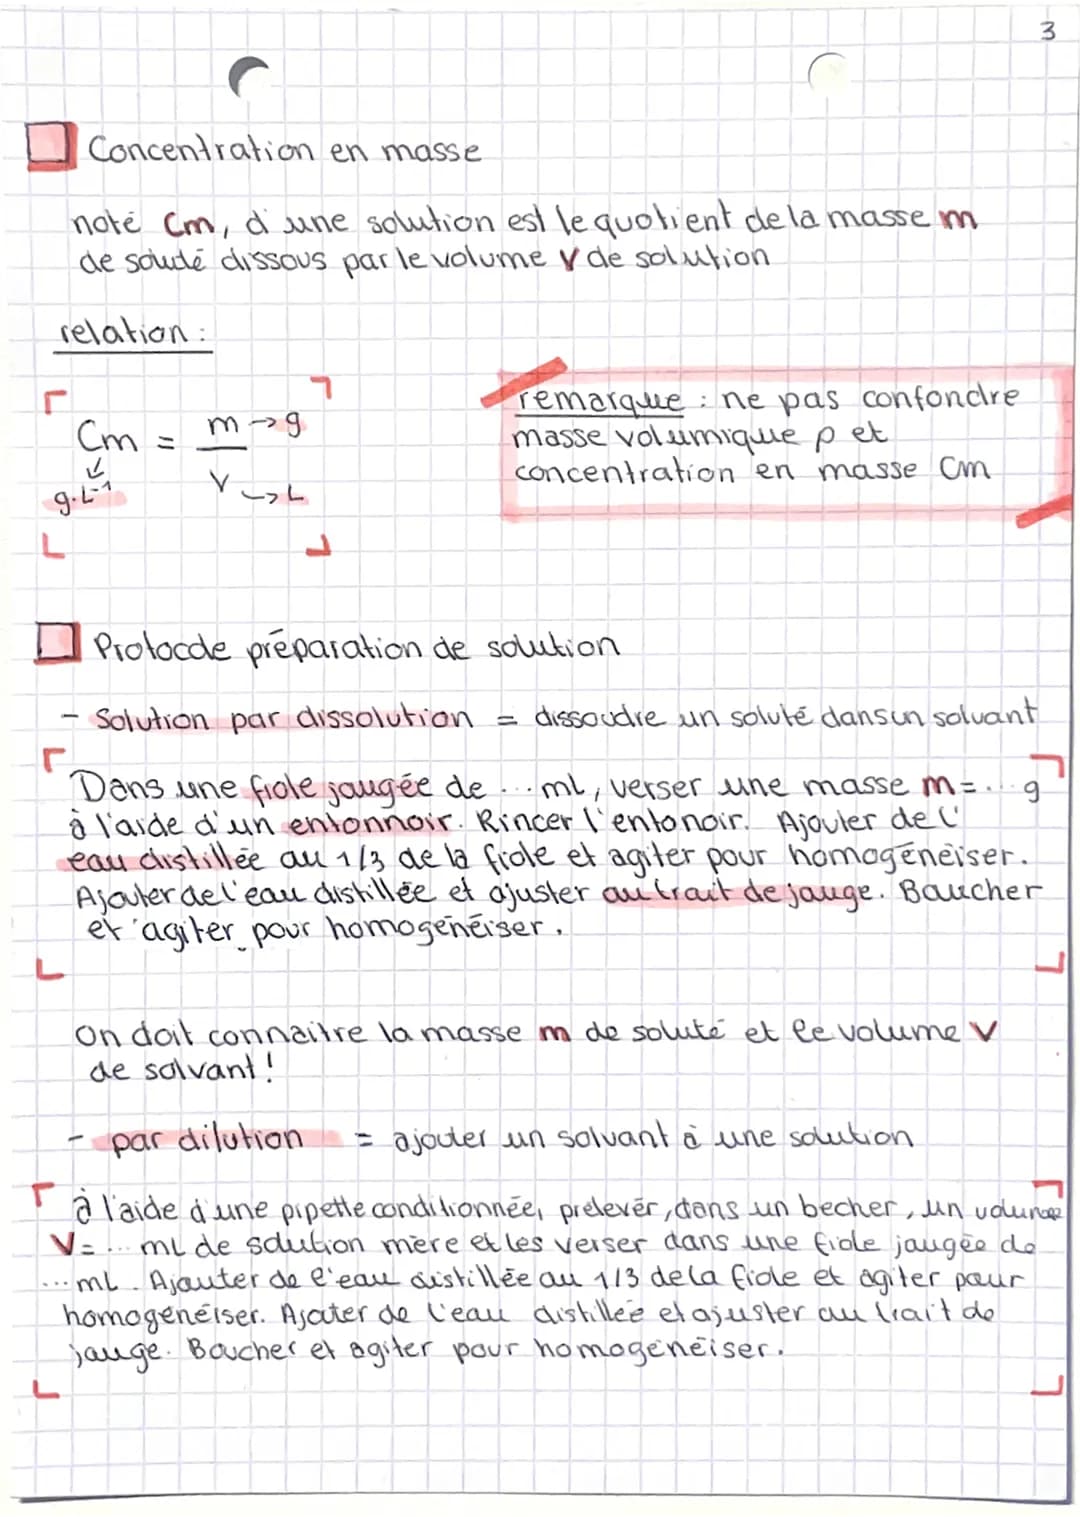 3
Concentration en masse
noté Cm, d'une solution est le quotient de la masse m
de soluté dissous par le volume V de solution
relation :
Cm = m → g
g.L⁻¹ V → L
remarque : ne pas confondre
masse volumique ρ et
concentration en masse Cm
Protocole préparation de solution
- Solution par dissolution = dissoudre un soluté dans un solvant
Dans une fiole jaugée de ... mL, verser une masse m = ... g
à l'aide d'un entonnoir. Rincer l'entonoir. Ajouter de l'
eau distillée au 1/3 de la fiole et agiter pour homogénéiser.
Ajouter de l'eau distillée et ajuster au trait de jauge. Baucher
et agiter pour homogénéiser.
On doit connaitre la masse m de soluté et le volume V
de solvant !
- par dilution = ajouter un solvant à une solution
à l'aide d'une pipette conditionnée, prélever, dans un becher, un volume
V = ... mL de solution mère et les verser dans une fiole jaugée de
... mL. Ajouter de l'eau distillée au 1/3 de la fiole et agiter pour
homogénéiser. Ajouter de l'eau distillée et ajuster au trait de
jauge. Boucher et agiter pour homogénéiser.